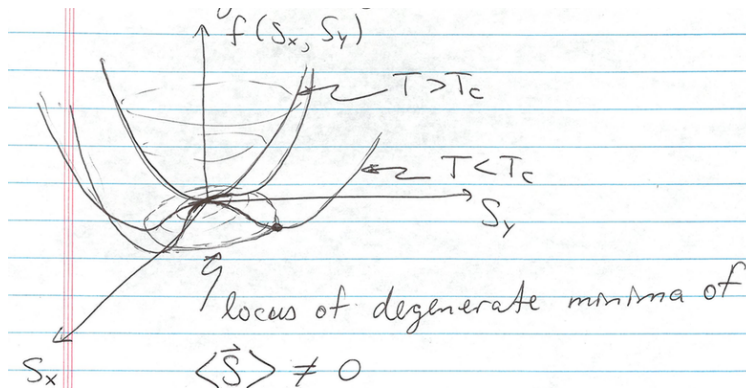 f(Sx, Sy)
T > Tc
T < Tc
Sy
locus of degenerate minima of
Sx
⟨S⃗⟩ ≠ 0